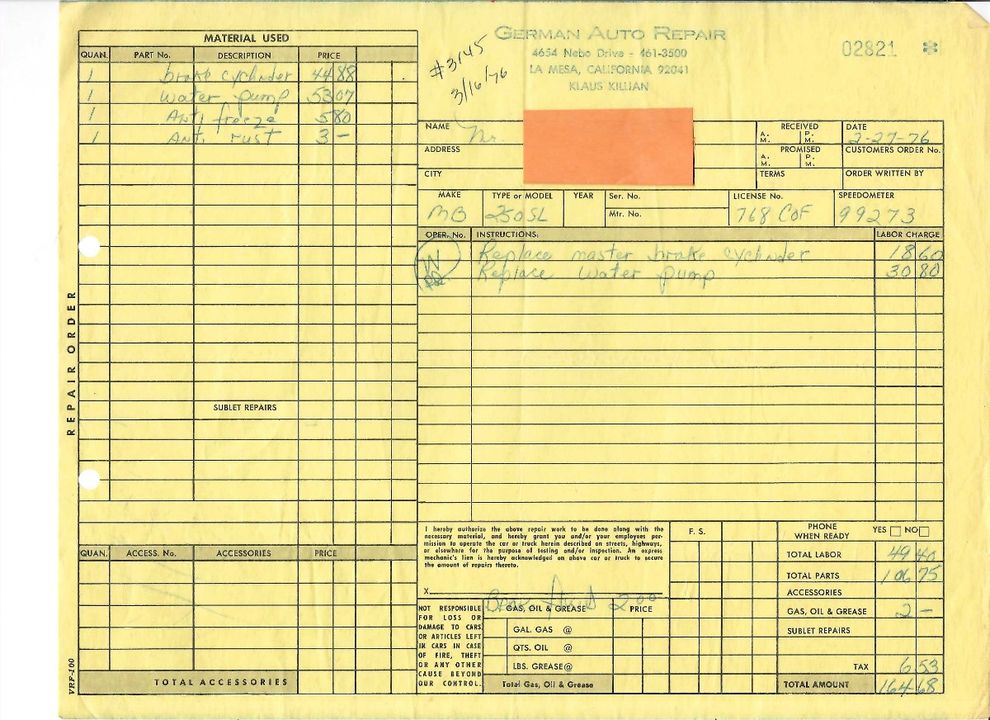 GERMAN AUTO REPAIR
4654 Nebo Drive - 461-3500
LA MESA, CALIFORNIA 92041
KLAUS KILLIAN
02821
#3145
3/16/76
MATERIAL USED
QUAN. PART No. DESCRIPTION PRICE
1 brake cylinder 44 88
1 Water pump 53 07
1 Anti freeze 5 80
1 Anti rust 3 -
SUBLET REPAIRS
REPAIR ORDER
QUAN. ACCESS. No. ACCESSORIES PRICE
TOTAL ACCESSORIES
VRP-100
NAME Mr.
RECEIVED A.M. P.M.
DATE 2-27-76
ADDRESS
PROMISED A.M. P.M.
CUSTOMERS ORDER No.
CITY
TERMS
ORDER WRITTEN BY
MAKE TYPE or MODEL YEAR Ser. No. LICENSE No. SPEEDOMETER
MB 250SL Mtr. No. 768 COF 99273
OPER. No. INSTRUCTIONS: LABOR CHARGE
Replace master brake cylinder 18 60
Replace Water pump 30 80
I hereby authorize the above repair work to be done along with the
necessary material, and hereby grant you and/or your employees per-
mission to operate the car or truck herein described on streets, highways,
or elsewhere for the purpose of testing and/or inspection. An express
mechanic's lien is hereby acknowledged on above car or truck to secure
the amount of repairs thereto.
X
F. S.
PHONE WHEN READY YES NO
TOTAL LABOR 49 40
TOTAL PARTS 106 75
ACCESSORIES
GAS, OIL & GREASE 2 -
SUBLET REPAIRS
TAX 6 53
TOTAL AMOUNT 164 68
NOT RESPONSIBLE
FOR LOSS OR
DAMAGE TO CARS
OR ARTICLES LEFT
IN CARS IN CASE
OF FIRE, THEFT
OR ANY OTHER
CAUSE BEYOND
OUR CONTROL.
2 00
GAS, OIL & GREASE PRICE
GAL. GAS @
QTS. OIL @
LBS. GREASE @
Total Gas, Oil & Grease